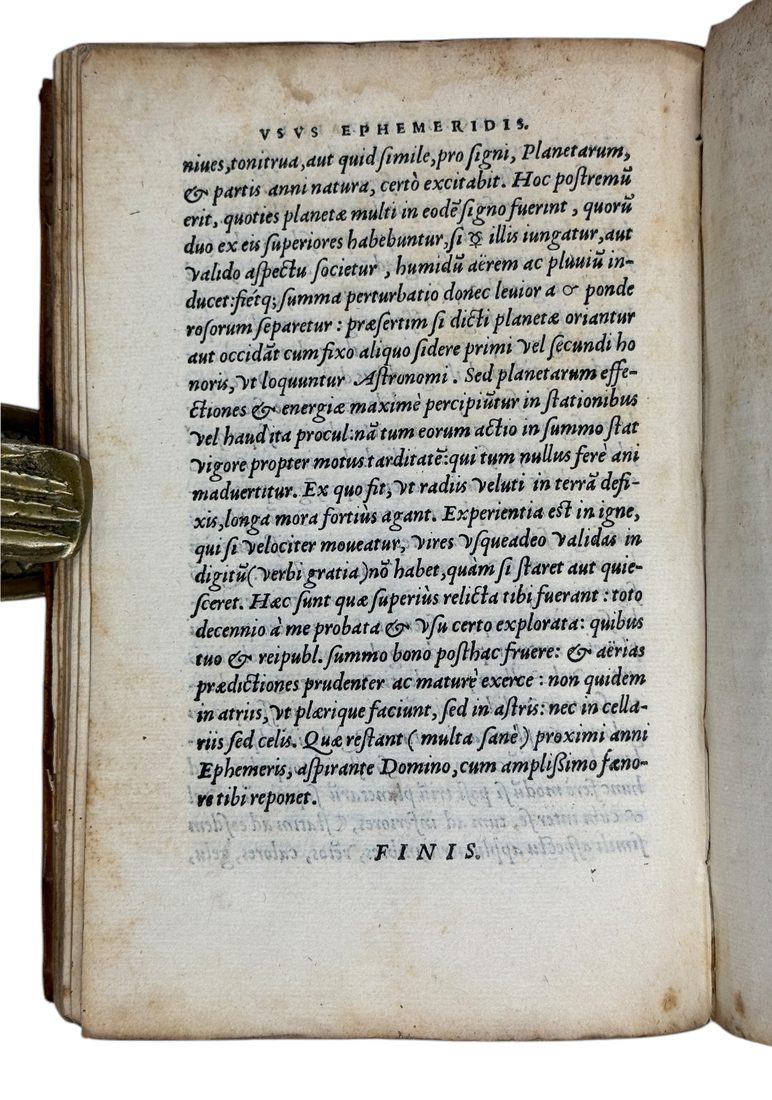 VSVS EPHEMERIDIS.
niues,tonitrua,aut quid ſimile,pro ſigni, Planetarum,
& partis anni natura, certò excitabit. Hoc poſtremū
erit, quoties planetæ multi in eodē ſigno fuerint, quorū
duo ex eis ſuperiores habebuntur, ſi ☿ illis iungatur, aut
valido aſpectu ſocietur, humidū aërem ac pluuiū in-
ducet: fiétq; ſumma perturbatio donec leuior a ponde
roſorum ſeparetur: præſertim ſi dicti planetæ oriantur
aut occidāt cum fixo aliquo ſidere primi vel ſecundi ho
noris, vt loquuntur Aſtronomi. Sed planetarum effe-
ctiones & energiæ maximè percipiūtur in ſtationibus
vel haud ita procul: nā tum eorum actio in ſummo ſtat
vigore propter motus tarditatē: qui tum nullus ferè ani
maduertitur. Ex quo fit, vt radiis veluti in terrā defi-
xis, longa mora fortiùs agant. Experientia eſt in igne,
qui ſi velociter moueatur, vires vſqueadeo validas in
digitū (verbi gratia) nō habet, quàm ſi ſtaret aut quie-
ſceret. Hæc ſunt quæ ſuperiùs relicta tibi fuerant: toto
decennio à me probata & vſu certo explorata: quibus
tuo & reipubl. ſummo bono poſthac fruere: & aërias
prædictiones prudenter ac maturè exerce: non quidem
in atriis, vt plærique faciunt, ſed in aſtris: nec in cella-
riis ſed celis. Quæ reſtant (multa ſanè) proximi anni
Ephemeris, aſpirante Domino, cum ampliſsimo fæno-
re tibi reponet.
FINIS.